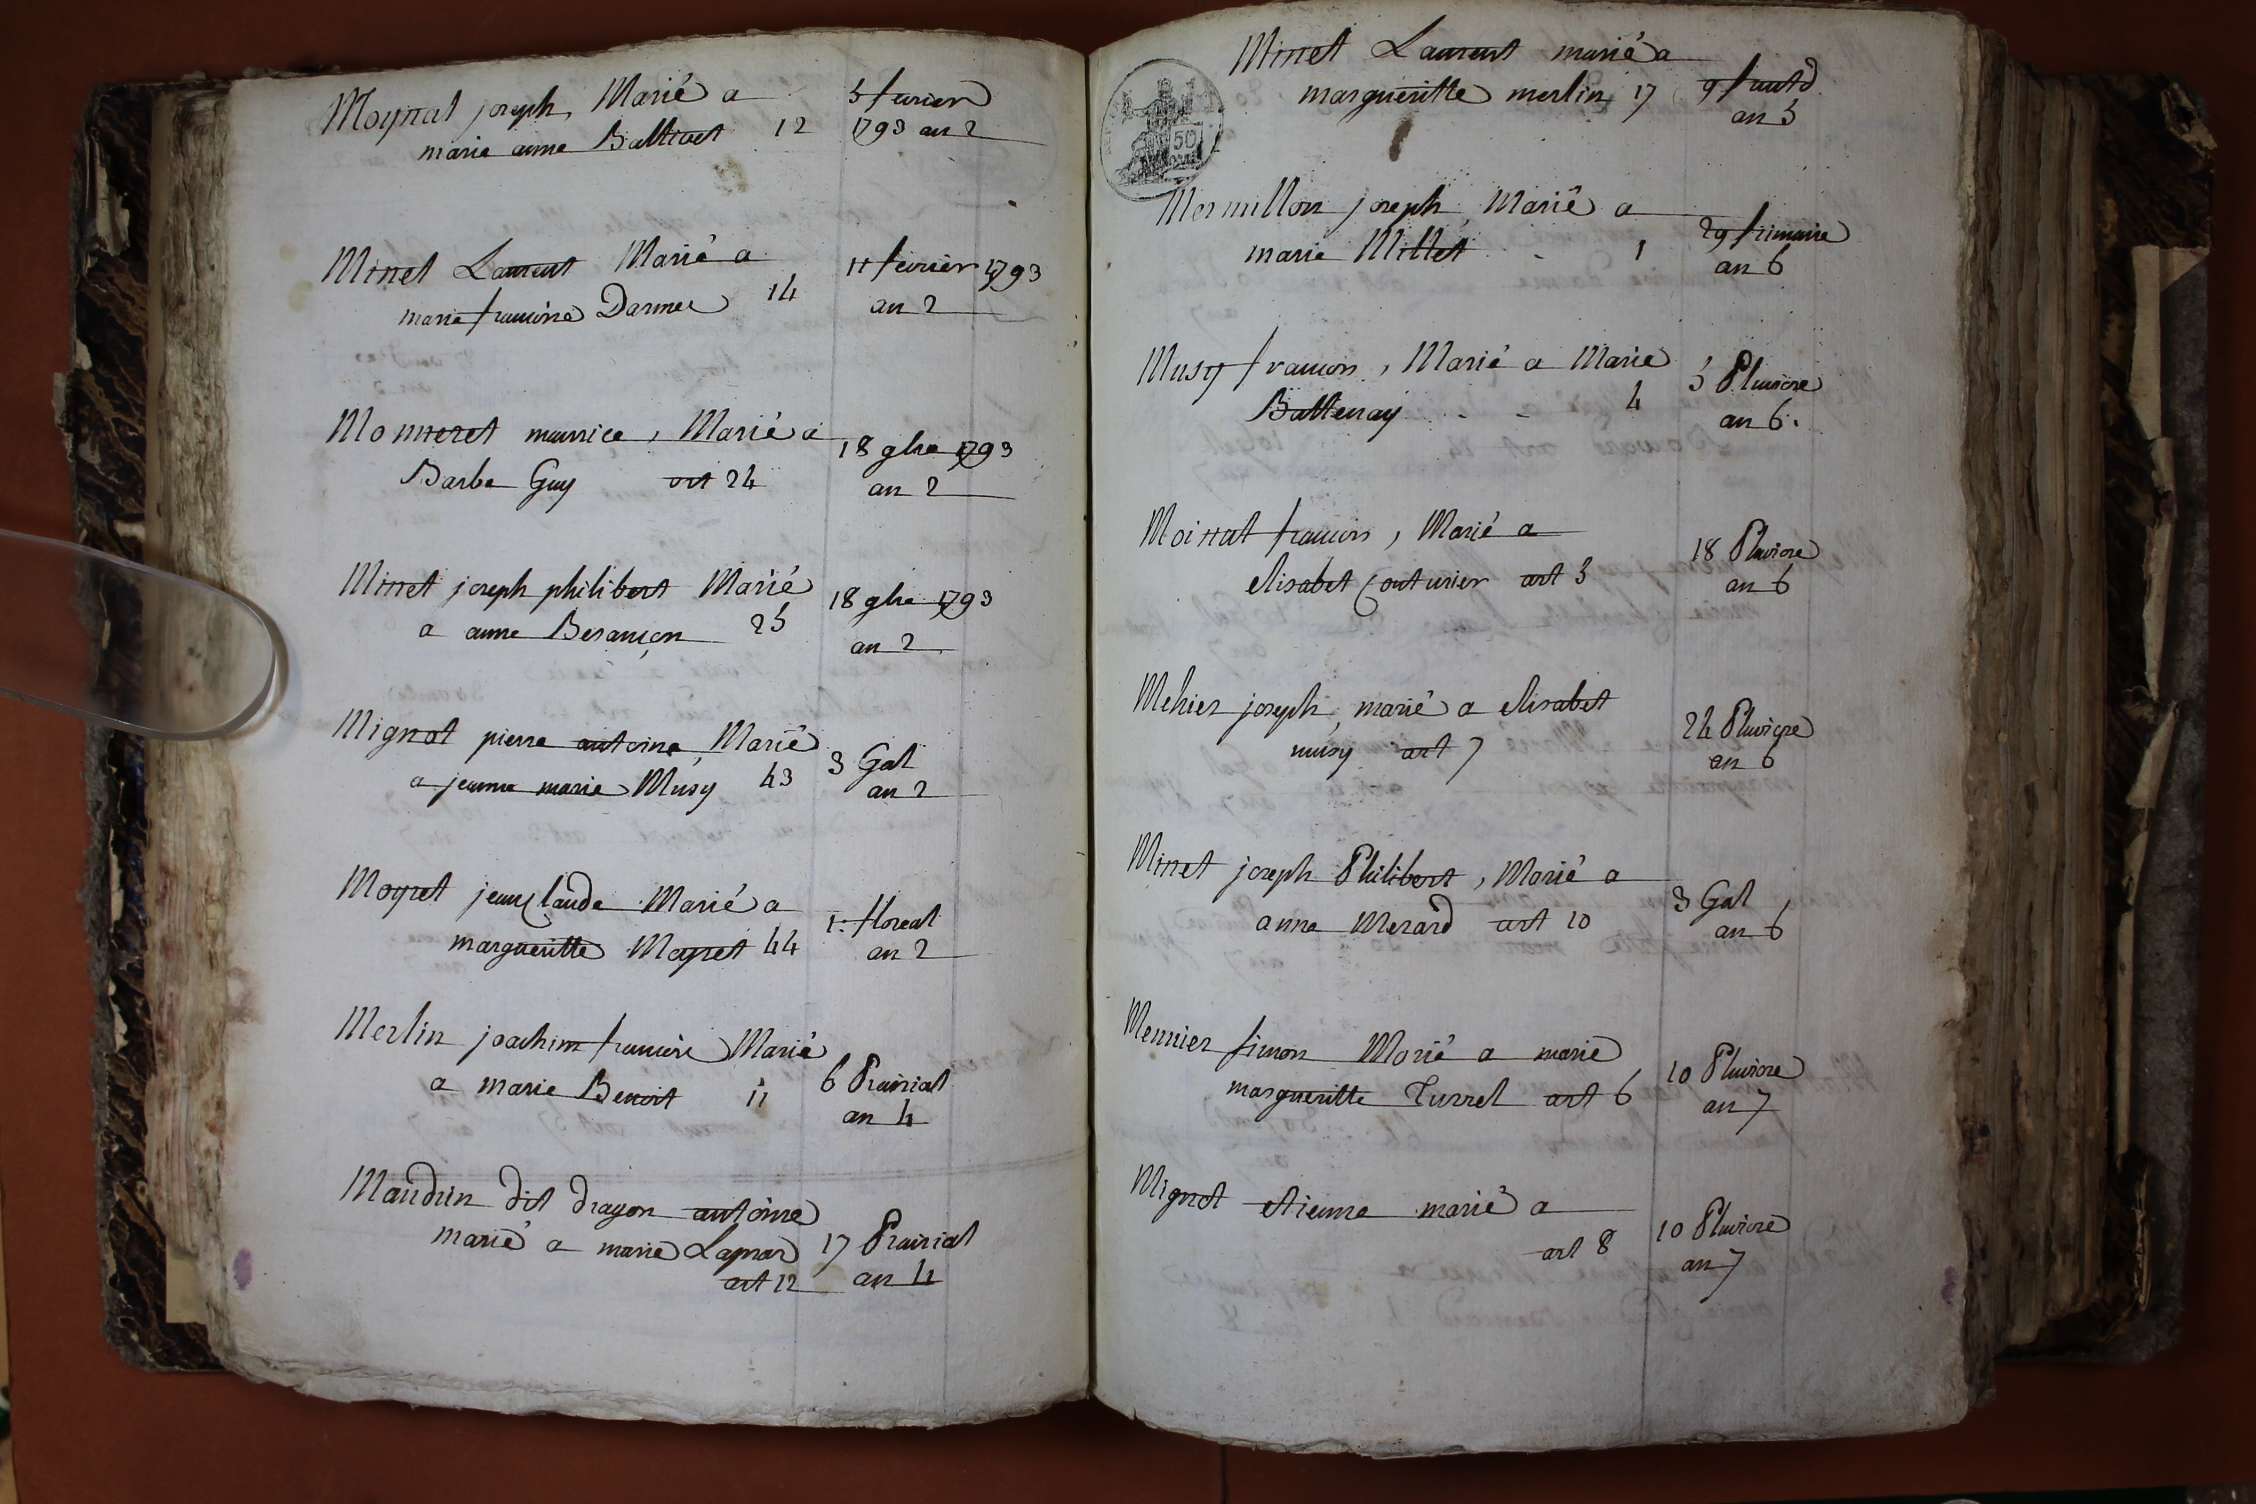 Moynat joseph, Marié a 5 fevrier
marie anne Battivet 12 1793 an 2
Minet Laurent Marié a 11 fevrier 1793
marie francoise Darmee 14 an 2
Monneret maurice, Marié a 18 9bre 1793
Barbe Guy art 24 an 2
Minet joseph philibert Marié 18 9bre 1793
a anne Besançon 25 an 2
Mignot pierre antoine, Marié 3 Gal
a jeanne marie Musy 43 an 2
Moyret jean Claude Marié a 1er floreal
margueritte Moyret 44 an 2
Merlin joachim francois Marié 6 Prairial
a marie Benoit 11 an 4
Maudrin dit dragon antoine
marié a marie Laprar 17 Prairial
art 12 an 4
Minet Laurent marié a
margueritte merlin 17 9 fructd
an 5
50
Mermillon joseph, Marié a 29 frimaire
marie Millet 1 an 6
Musy francois, Marié a Marie 5 Pluviose
Battenay 4 an 6.
Moinat francois, Marié a 18 Pluviose
elisabet Couturier art 5 an 6
Mehier joseph, marié a elisabet 24 Pluviose
musy art 7 an 6
Minet joseph Philibert, Marié a 3 Gal
anne Merard art 10 an 6
Mennier simon Marié a marie 10 Pluviose
margueritte Turrel art 6 an 7
Mignot etienne marié a 10 Pluviose
art 8 an 7